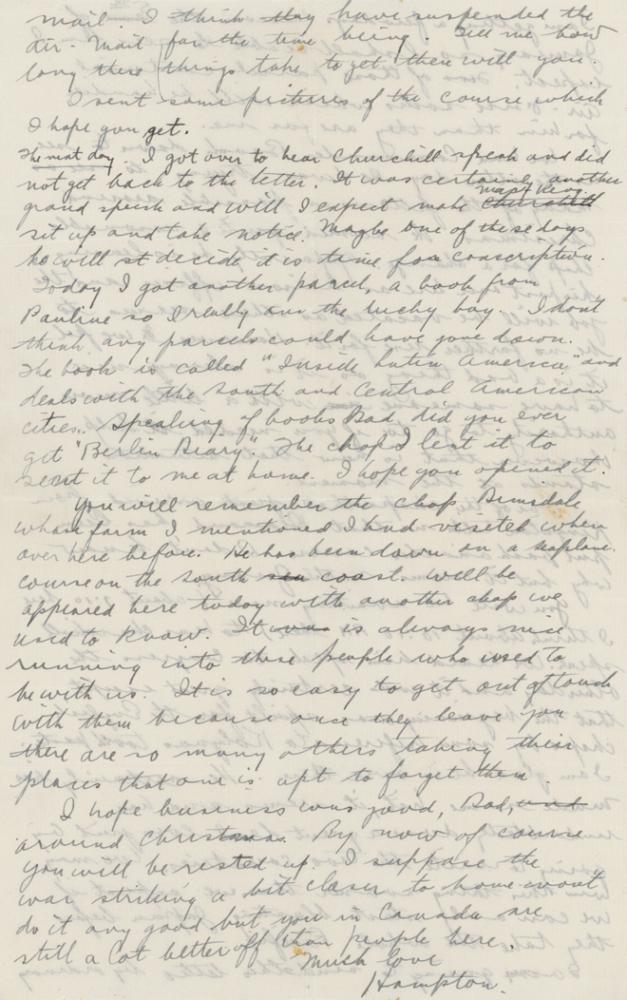 mail. I think they have suspended the
air-mail for the time being. Tell me how
long these things take to get there will you.
I sent some pictures of the course which
I hope you get.
The next day. I got over to hear Churchill speak and did
not get back to the letter. It was certainly another
grand speech and will I expect make Churchill MacKenzie
sit up and take notice. Maybe one of these days
he will st decide it is time for conscription.
Today I got another parcel, a book from
Pauline so I really am the lucky boy. I don't
think any parcels could have gone down.
The book is called "Inside Latin America" and
deals with the South and Central American
cities. Speaking of books Dad, did you ever
get "Berlin Diary". The chap I lent it to
sent it to me at home. I hope you opened it.
You will remember the chap Dimsdale
whose farm I mentioned I had visited when
over here before. He has been down on a seaplane
course on the south sea coast. Well he
appeared here today with another chap we
used to know. It was is always nice
running into these people who used to
be with us. It is so easy to get out of touch
with them because once they leave you
there are so many others taking their
places that one is apt to forget them.
I hope business was good, Dad, and
around Christmas. By now of course
you will be rested up. I suppose the
war striking a bit closer to home won't
do it any good but you in Canada are
still a lot better off than people here.
Much love
Hampton.